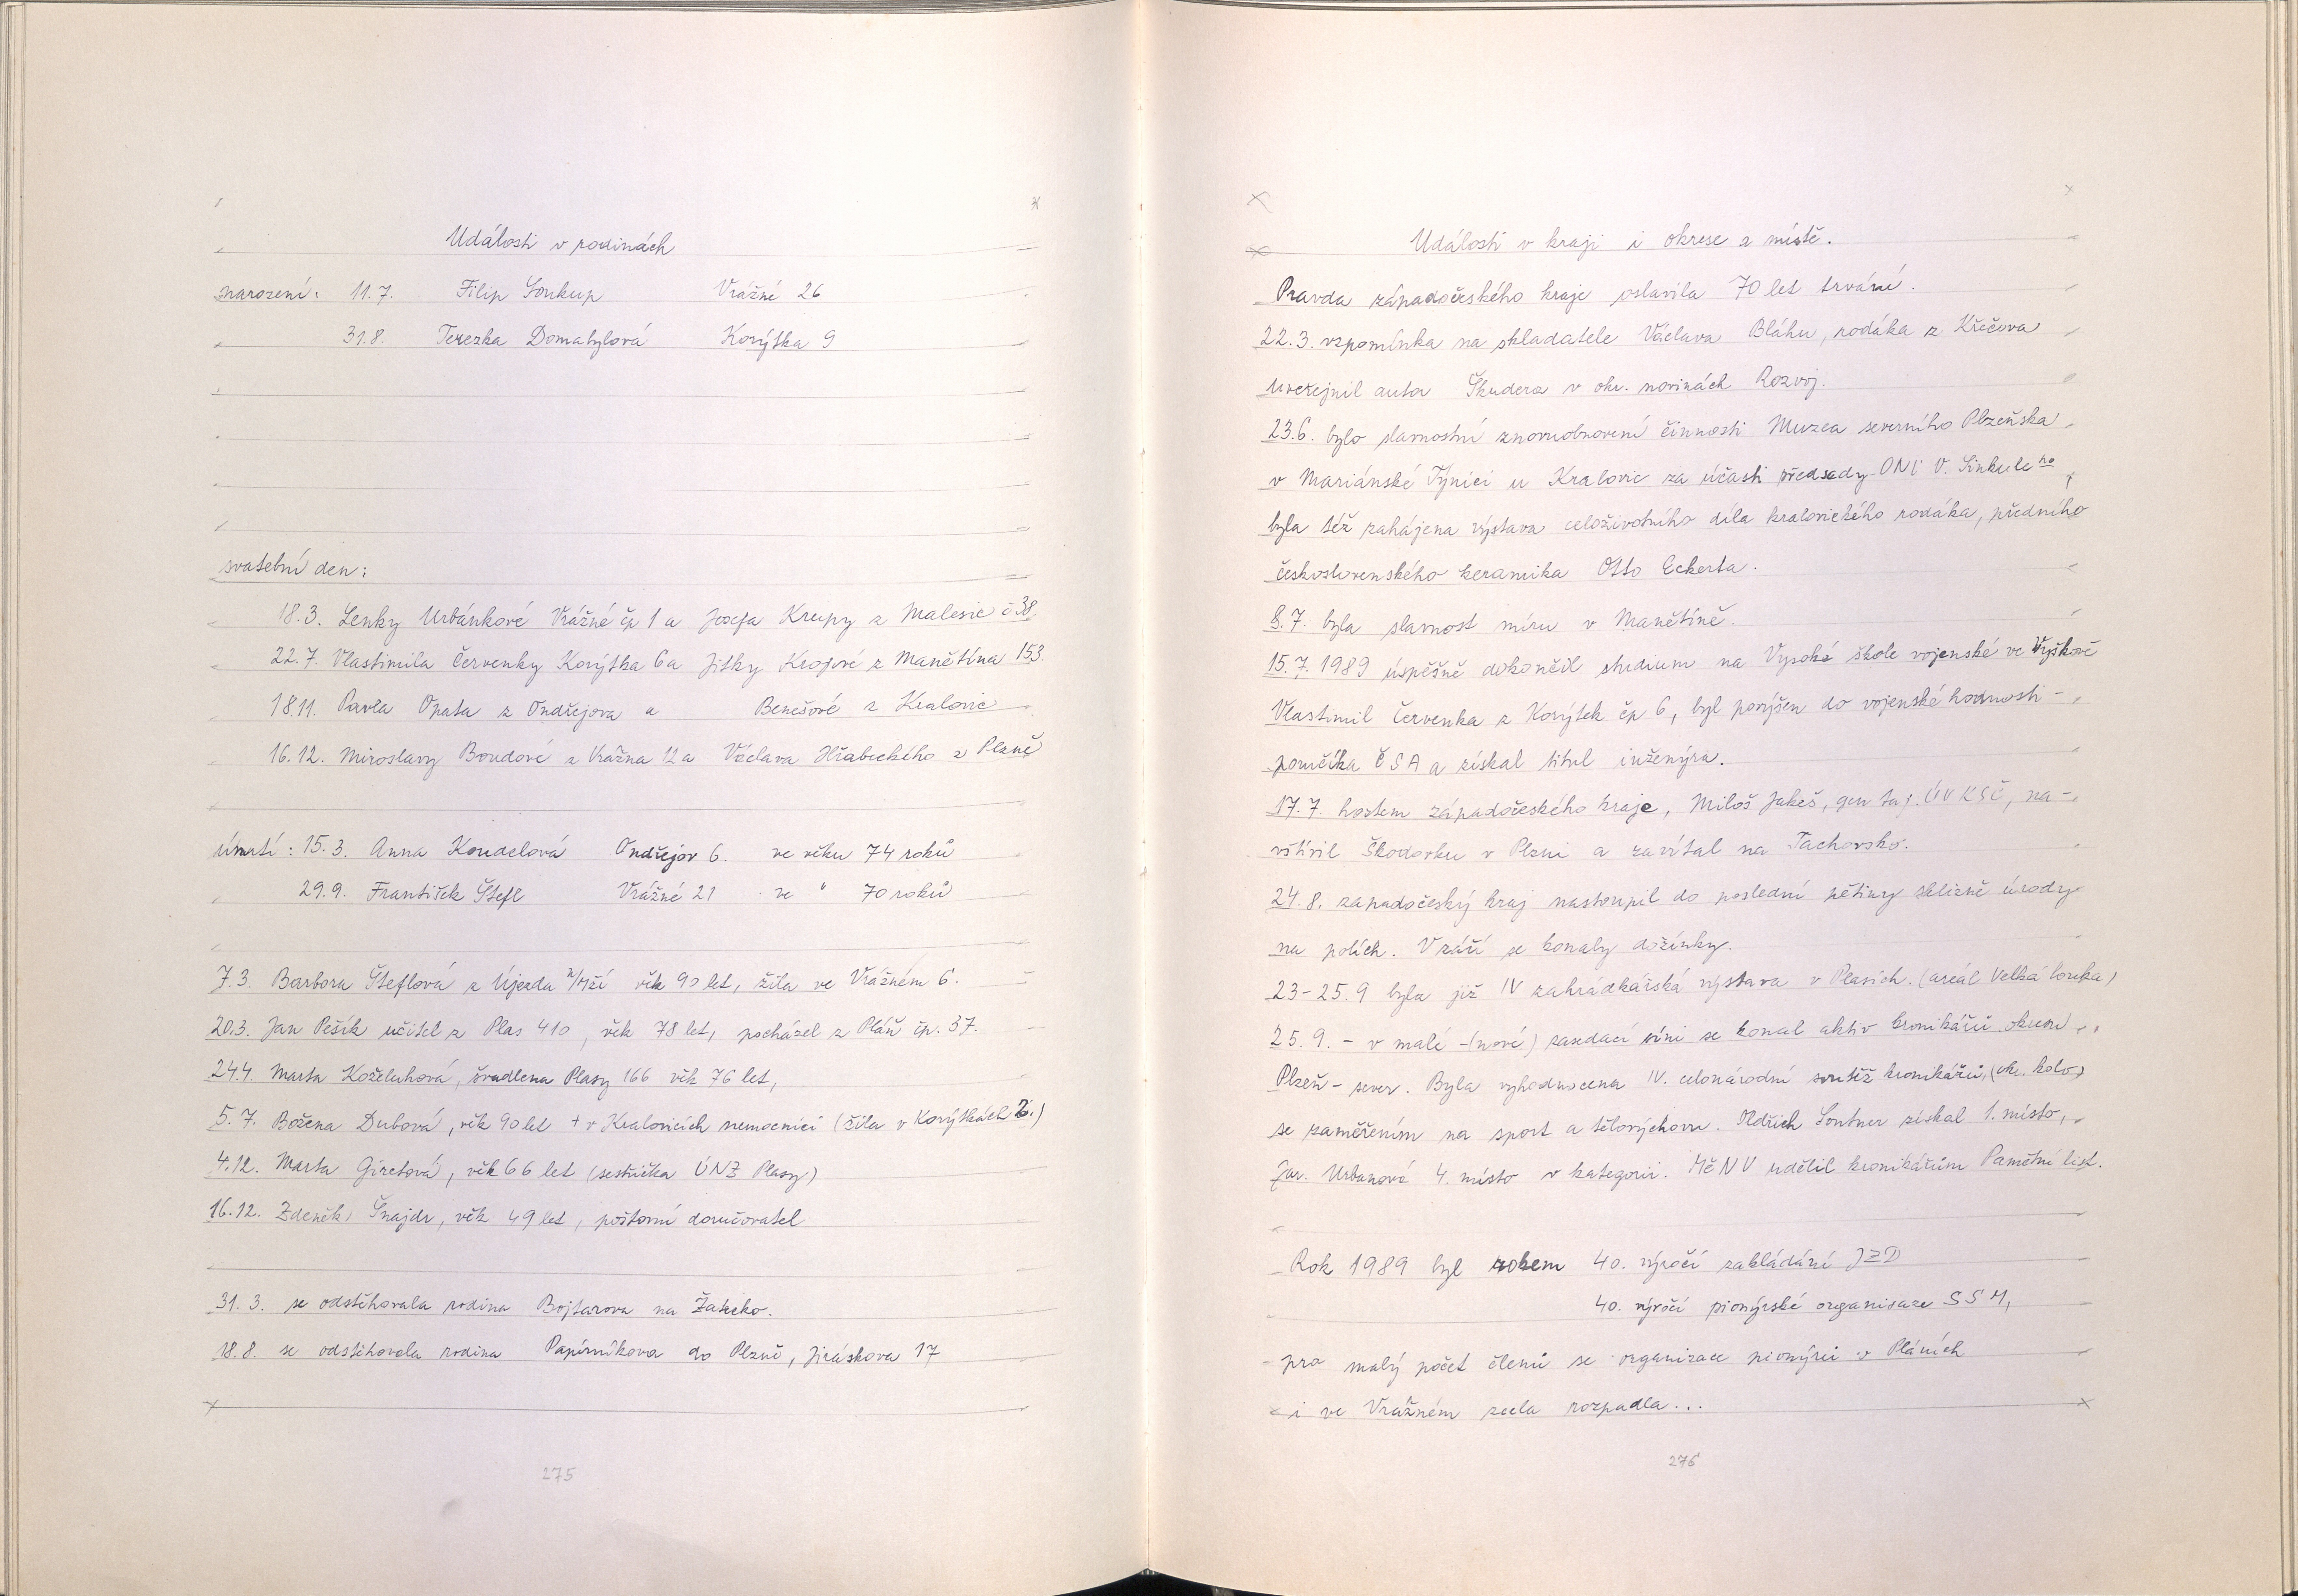 Události v rodinách
narození: 11.7. Filip Soukup Vrážné 26
31.8. Terezka Domabylová Korýtka 9
svatební den:
18.3. Lenky Urbánkové Vrážné čp 1 a Josefa Krupy z Malesic č 38.
22.7. Vlastimila Červenky Korýtka 6 a Jitky Krojové z Manětína 153.
18.11. Pavla Opata z Ondřejova a Benešové z Kralovic
16.12. Miroslavy Boudové z Vrážna 12 a Václava Hrabeckého z Plzně
úmrtí: 15.3. Anna Koudelová Ondřejov 6. ve věku 74 roků
29.9. František Štefl Vrážné 21 ve " 70 roků
7.3. Barbora Šteflová z Újezda n/Mží věk 90 let, žila ve Vrážném 6.
20.3. Jan Pešík učitel z Plas 410, věk 78 let, pocházel z Pláň čp. 37.
24.4. Marta Koželuhová, švadlena Plasy 166 věk 76 let,
5.7. Božena Dubová, věk 90 let + v Kralovicích nemocnici (žila v Korýtkách)
4.12. Marta Giretová, věk 66 let (sestřička ÚNZ Plasy)
16.12. Zdeněk Šnajdr, věk 49 let, poštovní doručovatel
31.3. se odstěhovala rodina Bojtarova na Žatecko.
18.8. se odstěhovala rodina Papírníkova do Plzně, Jiráskova 17
275
Události v kraji i okrese a místě.
Pravda západočeského kraje oslavila 70 let trvání.
22.3. vzpomínka na skladatele Václava Bláhu, rodáka z Křečova
uveřejnil autor Škudera v okr. novinách Rozvoj.
23.6. bylo slavnostní znovuobnovení činnosti Muzea severního Plzeňska
v Mariánské Týnici u Kralovic za účasti předsedy ONV V. Sinkuleho,
byla též zahájena výstava celoživotního díla kralovického rodáka, předního
československého keramika Otto Eckerta.
8.7. byla slavnost míru v Manětíně.
15.7.1989 úspěšně dokončil studium na Vysoké škole vojenské ve Vyškově
Vlastimil Červenka z Korýtek čp 6, byl povýšen do vojenské hodnosti -
poručíka ČSA a získal titul inženýra.
17.7. hostem západočeského kraje, Miloš Jakeš, gen taj. ÚV KSČ, na-
vštívil Škodovku v Plzni a zavítal na Tachovsko.
24.8. západočeský kraj nastoupil do poslední pětiny sklizně úrody
na polích. V září se konaly dožínky.
23-25.9 byla již IV zahrádkářská výstava v Plasích. (areál Velká louka)
25.9. - v malé - (nové) zasedací síni se konal aktiv kronikářů okresu
Plzeň - sever. Byla vyhodnocena IV. celonárodní soutěž kronikářů, (okr. kolo)
se zaměřením na sport a tělovýchovu. Oldřich Sontner získal 1. místo,
Jar. Urbanová 4. místo v kategorii. MěNV udělil kronikářům Pamětní list.
Rok 1989 byl rokem 40. výročí zakládání JZD
40. výročí pionýrské organisace SSM,
pro malý počet členů se organizace pionýrů v Pláních
i ve Vrážném zcela rozpadla...
276